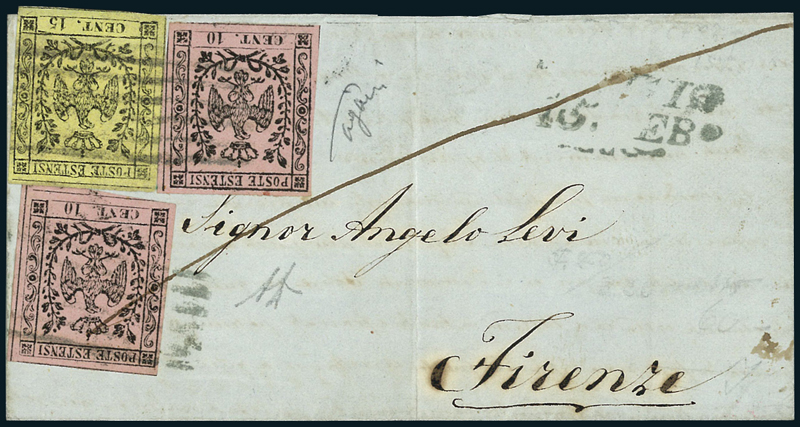 CENT. 15
POSTE ESTENSI
CENT. 10
POSTE ESTENSI
CENT. 10
POSTE ESTENSI
Signor Angelo Levi
Firenze